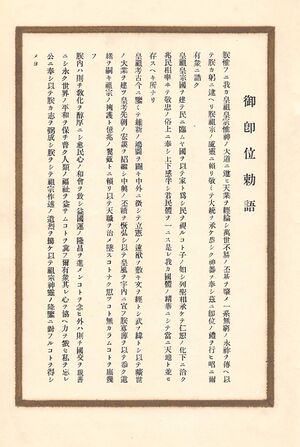 御即位勅語
朕惟フニ我カ皇祖皇宗惟神ノ大道ニ遵ヒ天業ヲ經綸シ萬世不易ノ丕基ヲ肇メ一系無窮ノ永祚ヲ傳ヘ以
テ朕カ躬ニ逮ヘリ朕祖宗ノ威靈ニ頼リ敬ミテ大統ヲ承ケ恭シク神器ヲ奉シ茲ニ即位ノ禮ヲ行ヒ昭ニ爾
有衆ニ誥ク
皇祖皇宗國ヲ建テ民ニ臨ムヤ國ヲ以テ家ト爲シ民ヲ視ルコト子ノ如シ列聖相承ケテ仁恕ノ化下ニ洽ク
兆民相率ヰテ敬忠ノ俗上ニ奉シ上下感孚シ君民體ヲ一ニス是レ我カ國體ノ精華ニシテ當ニ天地ト並ヒ
存スヘキ所ナリ
皇祖考古今ニ鑒ミテ維新ノ鴻圖ヲ闡キ中外ニ徴シテ立憲ノ遠猷ヲ敷キ文ヲ經トシ武ヲ緯トシ以テ曠世
ノ大業ヲ建ツ皇考先朝ノ宏謨ヲ紹繼シ中興ノ丕績ヲ恢弘シ以テ皇風ヲ宇内ニ宣フ朕寡薄ヲ以テ忝ク遺
緒ヲ嗣キ祖宗ノ擁護ト億兆ノ翼戴トニ頼リ以テ天職ヲ治メ墜スコト無ク愆ルコト無カラムコトヲ庶幾
フ
朕内ハ則チ敎化ヲ醇厚ニシ愈民心ノ和會ヲ致シ益國運ノ隆昌ヲ進メムコトヲ念ヒ外ハ則チ國交ヲ親善
ニシ永ク世界ノ平和ヲ保チ普ク人類ノ福祉ヲ益サムコトヲ冀フ爾有衆其レ心ヲ協ヘ力ヲ戮セ私ヲ忘レ
公ニ奉シ以テ朕カ志ヲ弼成シ朕ヲシテ祖宗作述ノ遺烈ヲ揚ケ以テ祖宗神靈ノ降鑒ニ對フルコトヲ得シ
メヨ